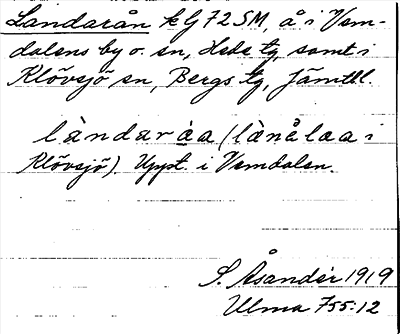 Landarån k G 7 2 SM, å i Vem-
dalens by o. sn, Hede tg, samt i
Klövsjö sn, Bergs tg, Jämtl.
làndaràa (lànålaa i
Klövsjö). Uppt. i Vemdalen.
S. Åsander 1919
Ulma 755:12